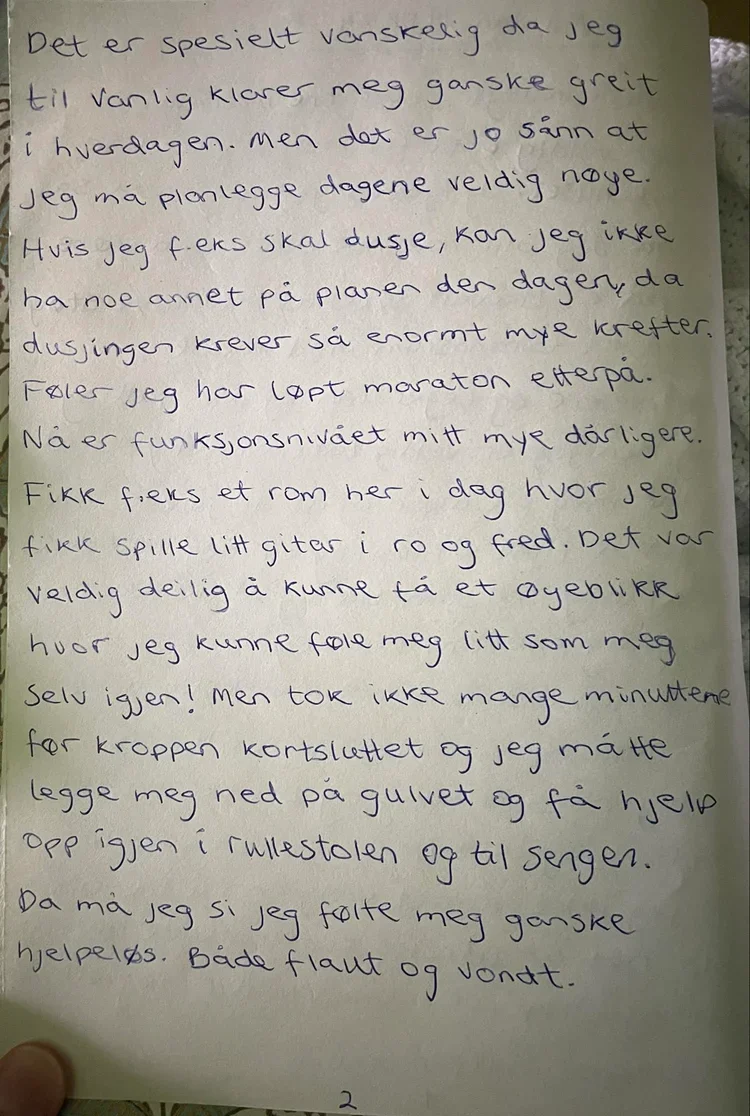 Det er spesielt vanskelig da jeg
til vanlig klarer meg ganske greit
i hverdagen. Men det er jo sånn at
jeg må planlegge dagene veldig nøye.
Hvis jeg f.eks skal dusje, kan jeg ikke
ha noe annet på planen den dagen, da
dusjingen krever så enormt mye krefter.
Føler jeg har løpt maraton etterpå.
Nå er funksjonsnivået mitt mye dårligere.
Fikk f.eks et rom her i dag hvor jeg
fikk spille litt gitar i ro og fred. Det var
veldig deilig å kunne få et øyeblikk
hvor jeg kunne føle meg litt som meg
selv igjen! Men tok ikke mange minuttene
før kroppen kortsluttet og jeg måtte
legge meg ned på gulvet og få hjelp
opp igjen i rullestolen og til sengen.
Da må jeg si jeg følte meg ganske
hjelpeløs. Både flaut og vondt.
2